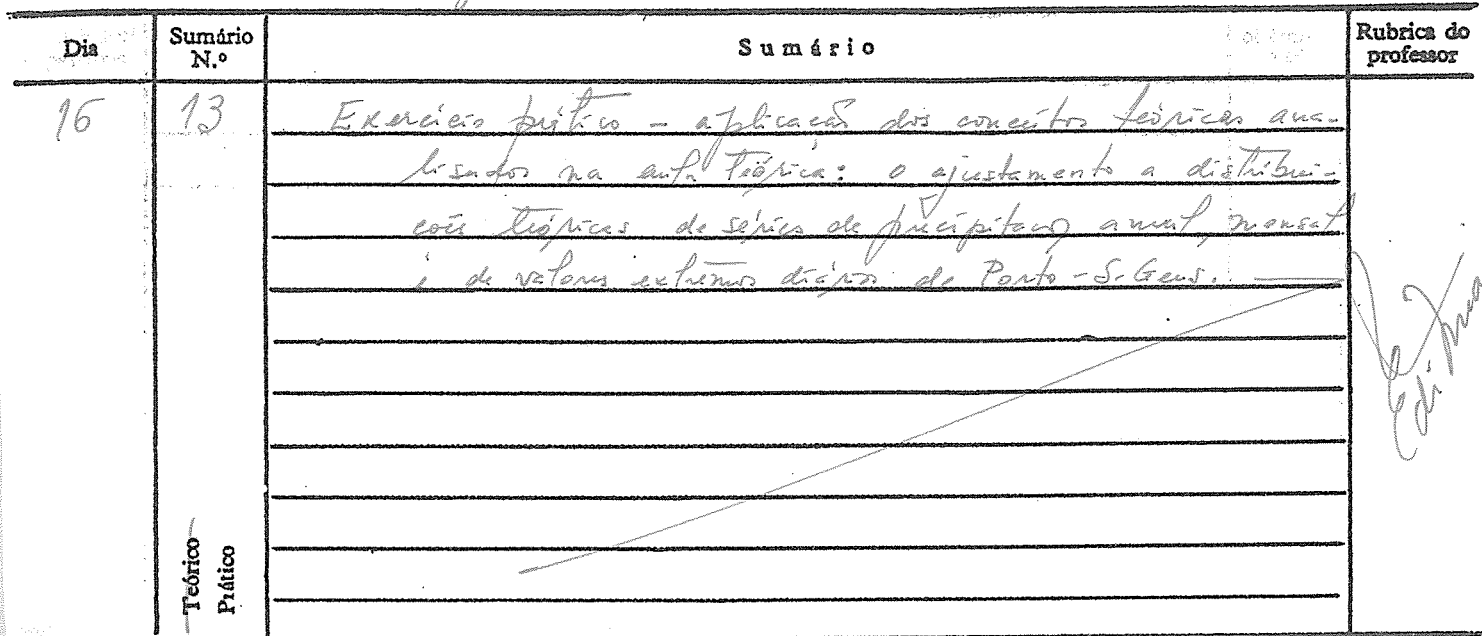 Dia Sumário N.º Sumário Rubrica do professor
16 13 Exercício prático - aplicação dos conceitos teóricos ana-
lisados na aula teórica: o ajustamento a distribui-
ções teóricas de séries de precipitação anual, mensal
e de valores extremos diários de Porto-S. Gens.
Teórico
Prático